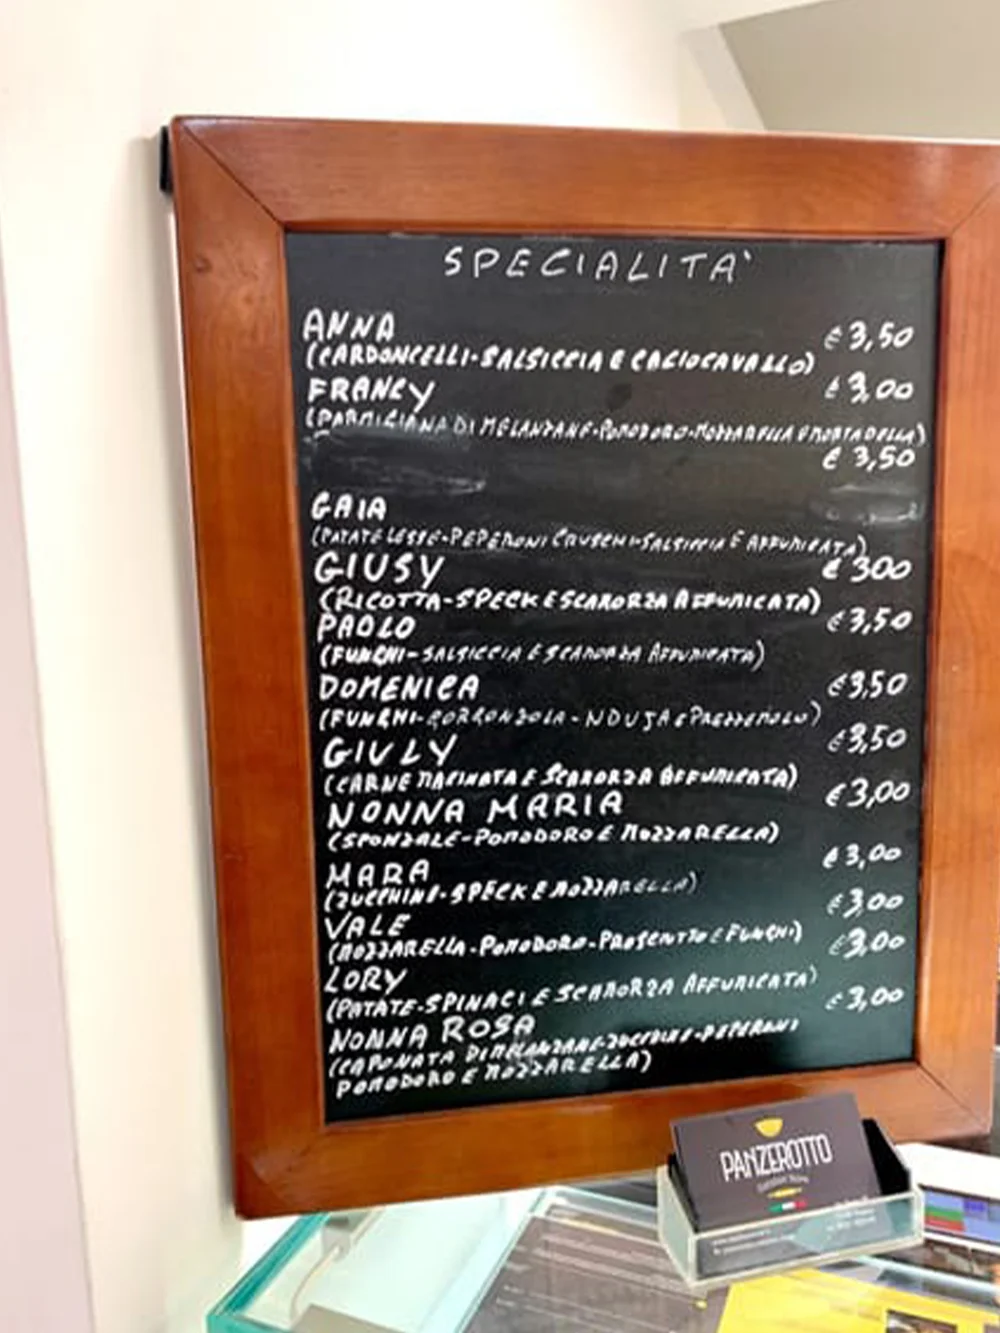 SPECIALITA'
ANNA € 3,50
(CARDONCELLI-SALSICCIA E CACIOCAVALLO)
FRANCY € 3,00
(PARMIGIANA DI MELANZANE-POMODORO-MOZZARELLA E MORTADELLA)
€ 3,50
GAIA
(PATATE LESSE-PEPERONI CRUSCHI-SALSICCIA E AFFUMICATA)
GIUSY € 300
(RICOTTA-SPECK E SCAMORZA AFFUMICATA)
PAOLO € 3,50
(FUNGHI-SALSICCIA E SCAMORZA AFFUMICATA)
DOMENICA € 3,50
(FUNGHI-GORGONZOLA-NDUJA E PREZZEMOLO)
GIULY € 3,50
(CARNE MACINATA E SCAMORZA AFFUMICATA)
NONNA MARIA € 3,00
(SPONZALE-POMODORO E MOZZARELLA)
MARA € 3,00
(ZUCCHINE-SPECK E MOZZARELLA)
VALE € 3,00
(MOZZARELLA-POMODORO-PROSCIUTTO E FUNGHI)
LORY € 3,00
(PATATE-SPINACI E SCAMORZA AFFUMICATA)
NONNA ROSA € 3,00
(CAPONATA DI MELANZANE-ZUCCHINE-PEPERONI
POMODORO E MOZZARELLA)
PANZEROTTO